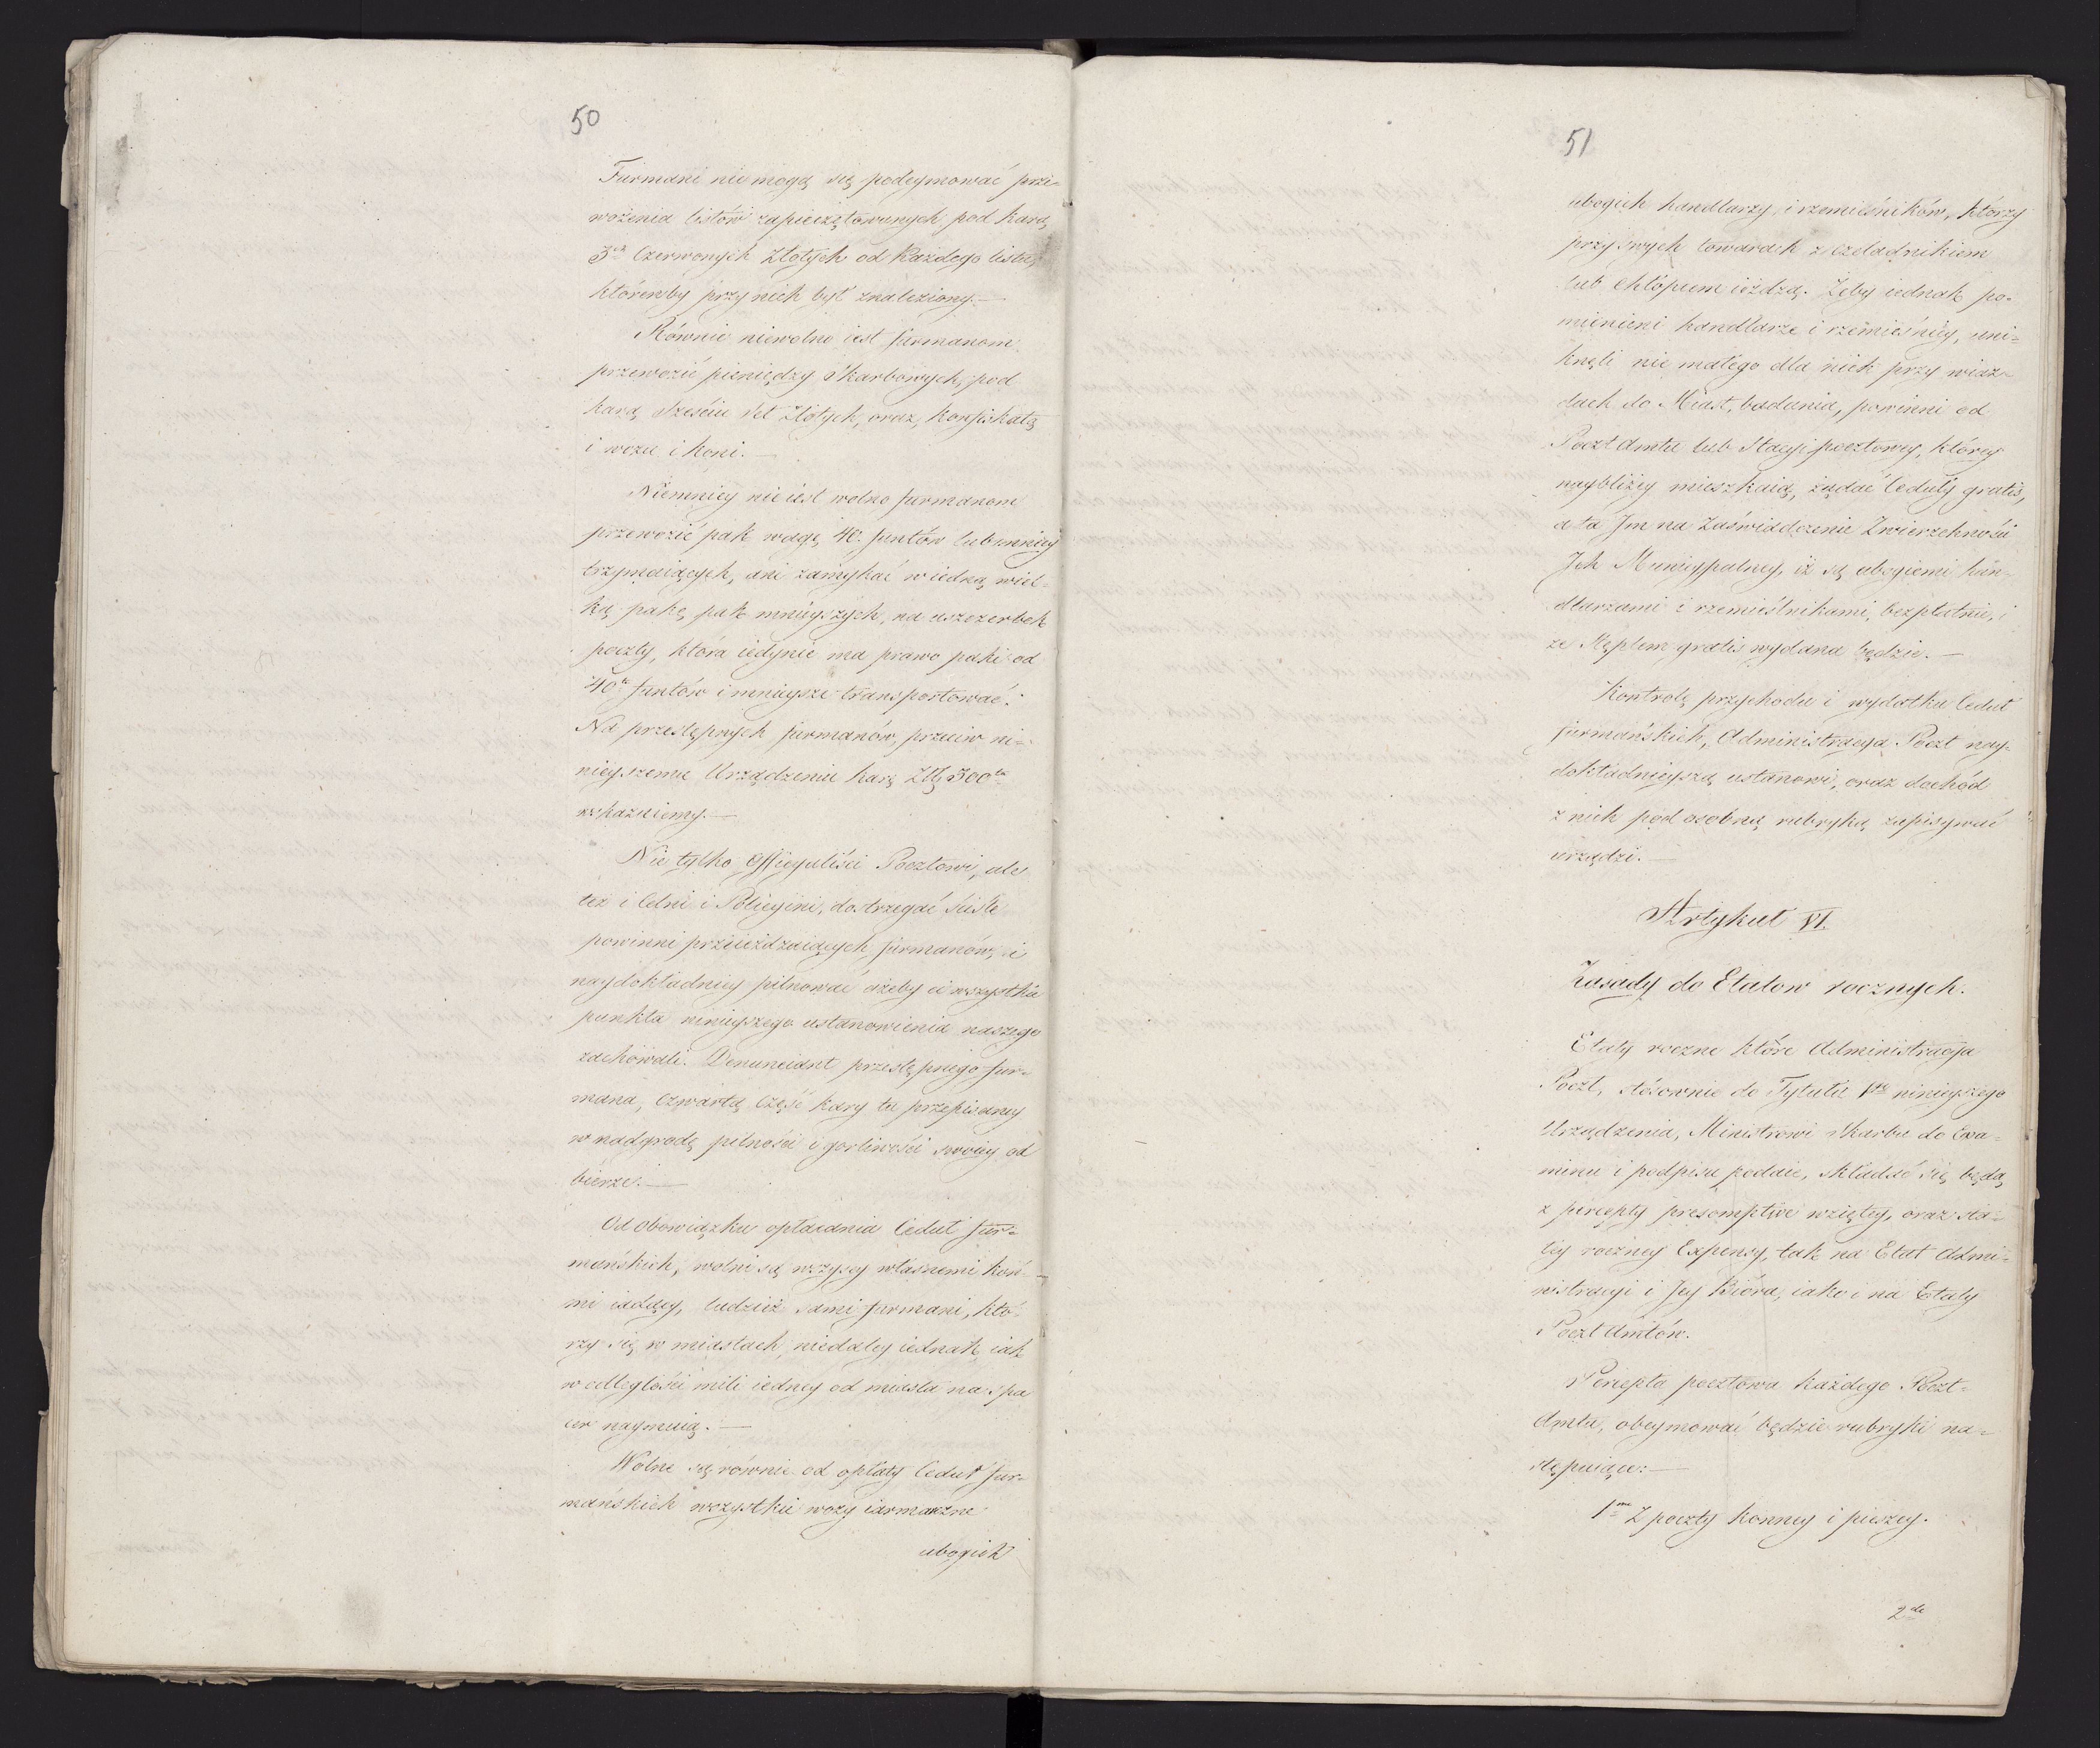 50
Furmani nie mogą się podeymować prze-
wożenia listów zapieczętowanych pod karą
3ch Czerwonych Złotych od każdego listu,
którenby przy nich był znaleziony.—
Równie niewolno iest furmanom
przewozić pieniędzy Skarbowych, pod
karą Sześciu Set Złotych, oraz, konfiskatą
i wozu i koni.—
Niemniey nie iest wolno furmanom
przewozić pak wagę 40. funtów lub mniey
trzymaiących, ani zamykać w iedną wiel-
ką pakę pak mnieyszych, na uszczerbek
poczty, która iedynie ma prawo paki od
40tu funtów i mnieysze transportować.
Na przestępnych furmanów, przeciw ni-
nieyszemu Urządzeniu karę Złł 300ta
wskazuiemy.—
Nie tylko Officyaliści Pocztowi, ale
też i Celni i Policyini, dostrzegać ściśle
powinni przeieżdzaiących furmanów, i
naydokładniey pilnować ażeby ci wszystkie
punkta ninieyszego ustanowienia naszego
zachowali. Denunciant przestępnego fur-
mana, czwartą część kary tu przepisaney
w nadgrodę pilności i gorliwości swoiey od
bierze.—
Od obowiązku opłacania Cedut fur-
mańskich, wolni są wszyscy własnemi koń-
mi iadący, tudzież sami furmani, któ-
rzy się w miastach, niedaley iednak, iak
w odległości mili iedney od miasta na spa
cer naymuią.—
Wolne są równie od opłaty Cedut fur-
mańskich wszystkie wozy iarmaczne
ubogich
51
ubogich handlarzy i rzemieśników, którzy
przy swych towarach z czeladnikiem
lub chłopcem ieżdżą. Żeby iednak po-
mienieni handlarze i rzemieśnicy, uni-
knęli nie małego dla nich przy wiaz-
dach do Miast, badania, powinni od
Poczt Amtu lub Stacyi pocztowey, którey
naybliżey mieszkaią, żądać Ceduły gratis,
a ta Im na Zaświadczenie Zwierzchności
Ich Municypalney, iż są ubogiemi han-
dlarzami i rzemieślnikami, bezpłatnie, i
ze Stęplem gratis wydana będzie.—
Kontrolę przychodu i wydatku Cedut
furmańskich, Administracya Poczt nay-
dokładnieyszą ustanowi, oraz dochód
z nich pod osobną rubryką zapisywać
urządzi.—
Artykuł VI.
Zasady do Etatow rocznych.
Etaty roczne które Administracya
Poczt, stósownie do Tytułu 1go ninieyszego
Urządzenia, Ministrowi Skarbu do Exa-
minu i podpisu podaie, składać się będą,
z percepty presomptive wziętey, oraz sta-
łey roczney Expensy, tak na Etat Admi-
nistracyi i Jey Bióra, iako i na Etaty
Poczt Amtów.
Percepta pocztowa każdego Poczt-
Amtu, obeymować będzie rubryki na-
stępuiące:—
1mo Z poczty konney i pieszey.
2do